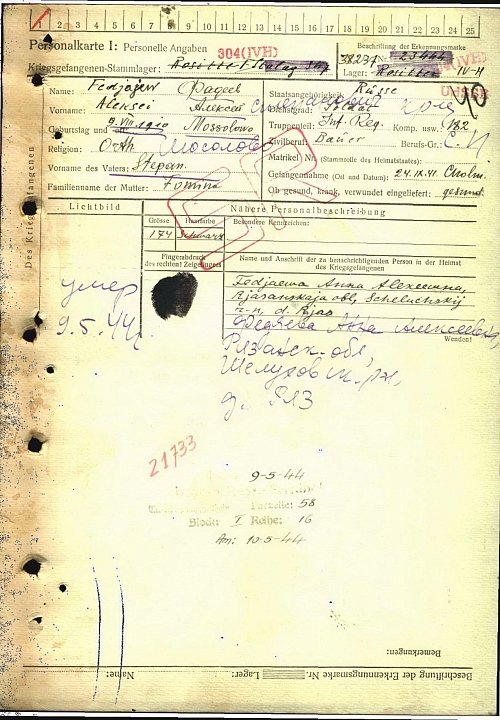 1 2 3 4 5 6 7 8 9 10 11 12 13 14 15 16 17 18 19 20 21 22 23 24 25
Personalkarte I: Personelle Angaben
304(IVH)
Beschriftung der Erkennungsmarke
Kriegsgefangenen-Stammlager:
Nr.
Lager:
IV H
Name: Fedjajew Фадеев
Vorname: Aleksei Алексей Степанович
Geburtstag und -ort: 9.VIII.1910 Mossolowo
Religion: Orth. Мосолово
Vorname des Vaters: Stepan
Familienname der Mutter: Fomina
Staatsangehörigkeit: Russe
Dienstgrad: Soldat
Truppenteil: Inf. Reg. Komp. usw.: 182
Zivilberuf: Bauer Berufs-Gr.:
Matrikel Nr. (Stammrolle des Heimatstaates):
Gefangennahme (Ort und Datum): 24.IX.41. Cholm.
Ob gesund, krank, verwundet eingeliefert: gesund.
Des Kriegsgefangenen
Lichtbild
Nähere Personalbeschreibung
Grösse Haarfarbe Besondere Kennzeichen:
174 schwarz
Fingerabdruck
des rechten! Zeigefingers
Name und Anschrift der zu benachrichtigenden Person in der Heimat
des Kriegsgefangenen
Fedjaewa Anna Alexeewna,
Rjasanskaja obl, Scheluchskij
r-n, d. Rjas
Wenden!
умер
9.5.44г.
Федяева Анна Алексеевна,
Рязанск. обл,
Шелухов р-н,
д. Ряз
21733
9-5-44
Parzelle: 58
Block: I Reihe: 16
Am: 10-5-44
Bemerkungen:
Name:
Lager:
Beschriftung der Erkennungsmarke Nr.